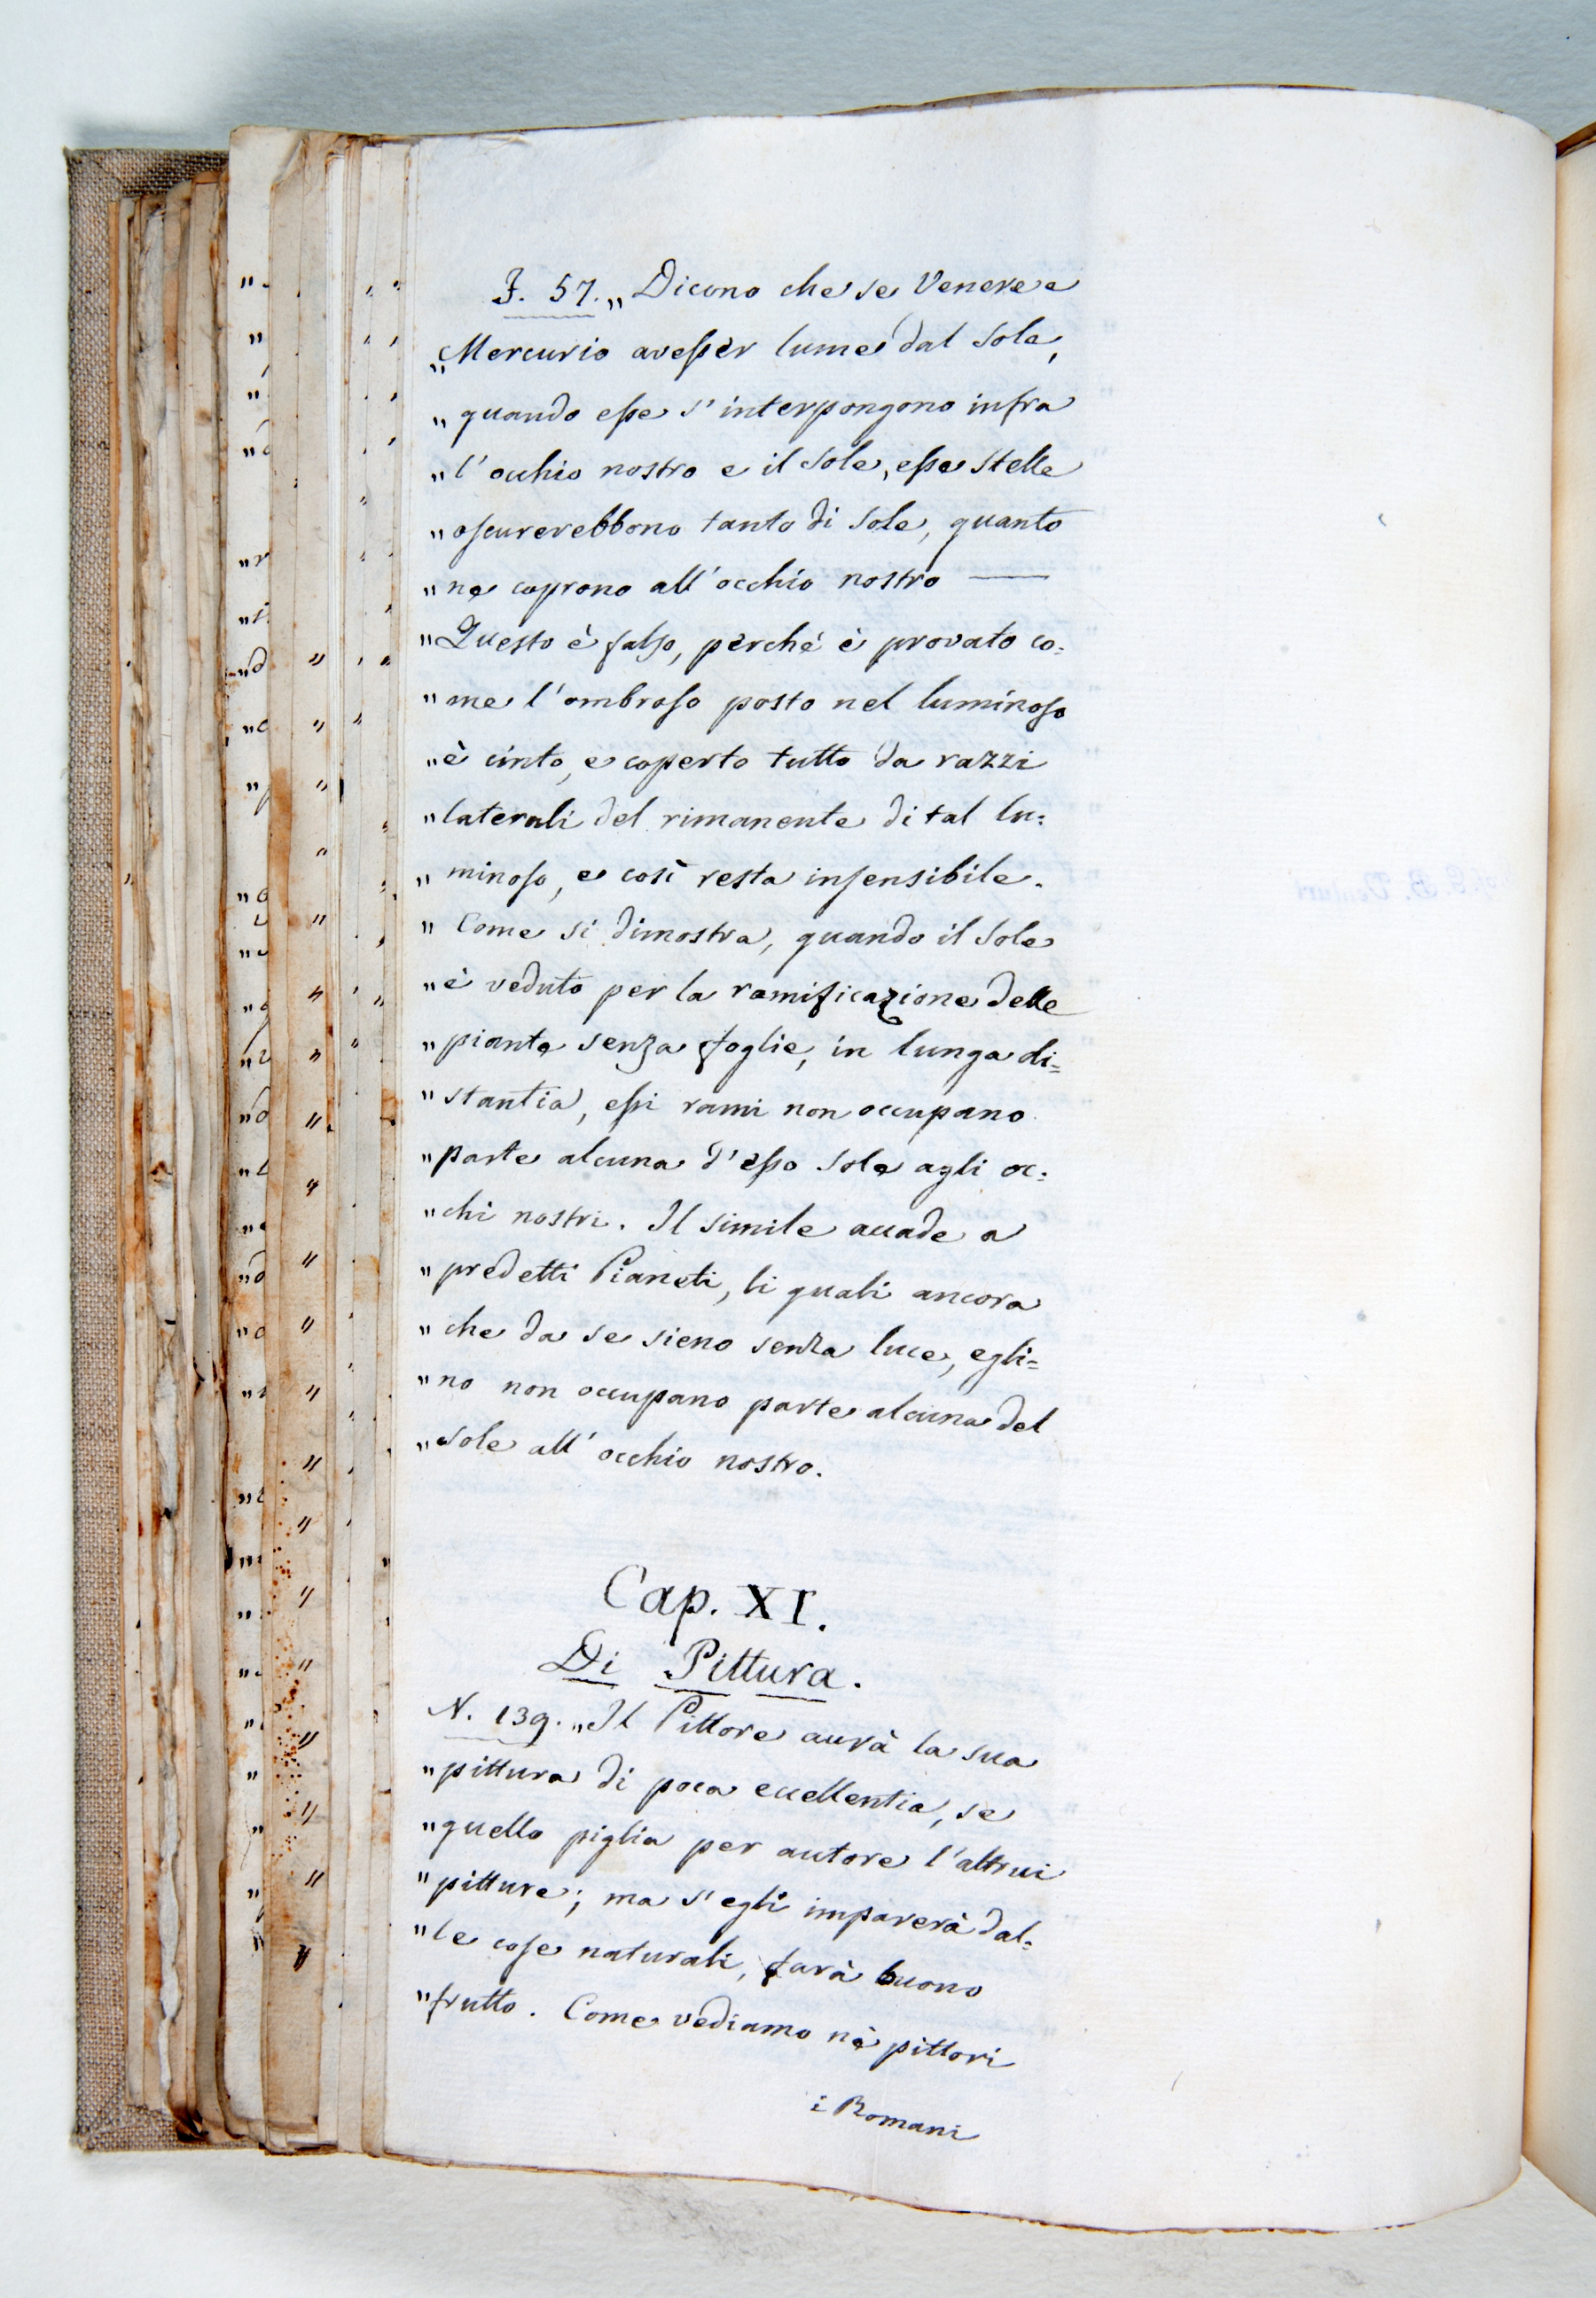 F. 57. „Dicono che se Venere e
„Mercurio avesser lume dal Sole,
„quando esse s'interpongono infra
„l'occhio nostro e il Sole, esse stelle
„oscurerebbono tanto di Sole, quanto
„ne coprono all'occhio nostro —
„Questo è falso, perché è provato co=
„me l'ombroso posto nel luminoso
„è cinto, e coperto tutto da razzi
„laterali del rimanente di tal lu=
„minoso, e così resta insensibile.
„Come si dimostra, quando il Sole
„è veduto per la ramificazione delle
„piante senza foglie, in lunga di=
„stantia, essi rami non occupano
„parte alcuna d'esso Sole agli oc=
„chi nostri. Il simile accade a
„predetti Pianeti, li quali ancora
„che da se sieno senza luce, egli=
„no non occupano parte alcuna del
„Sole all'occhio nostro.
Cap. XI.
Di Pittura.
N. 139. „Il Pittore aurà la sua
„pittura di poca eccellentia, se
„quello piglia per autore l'altrui
„pitture; ma s'egli imparerà dal=
„le cose naturali, farà buono
„frutto. Come vediamo nè pittori
i Romani